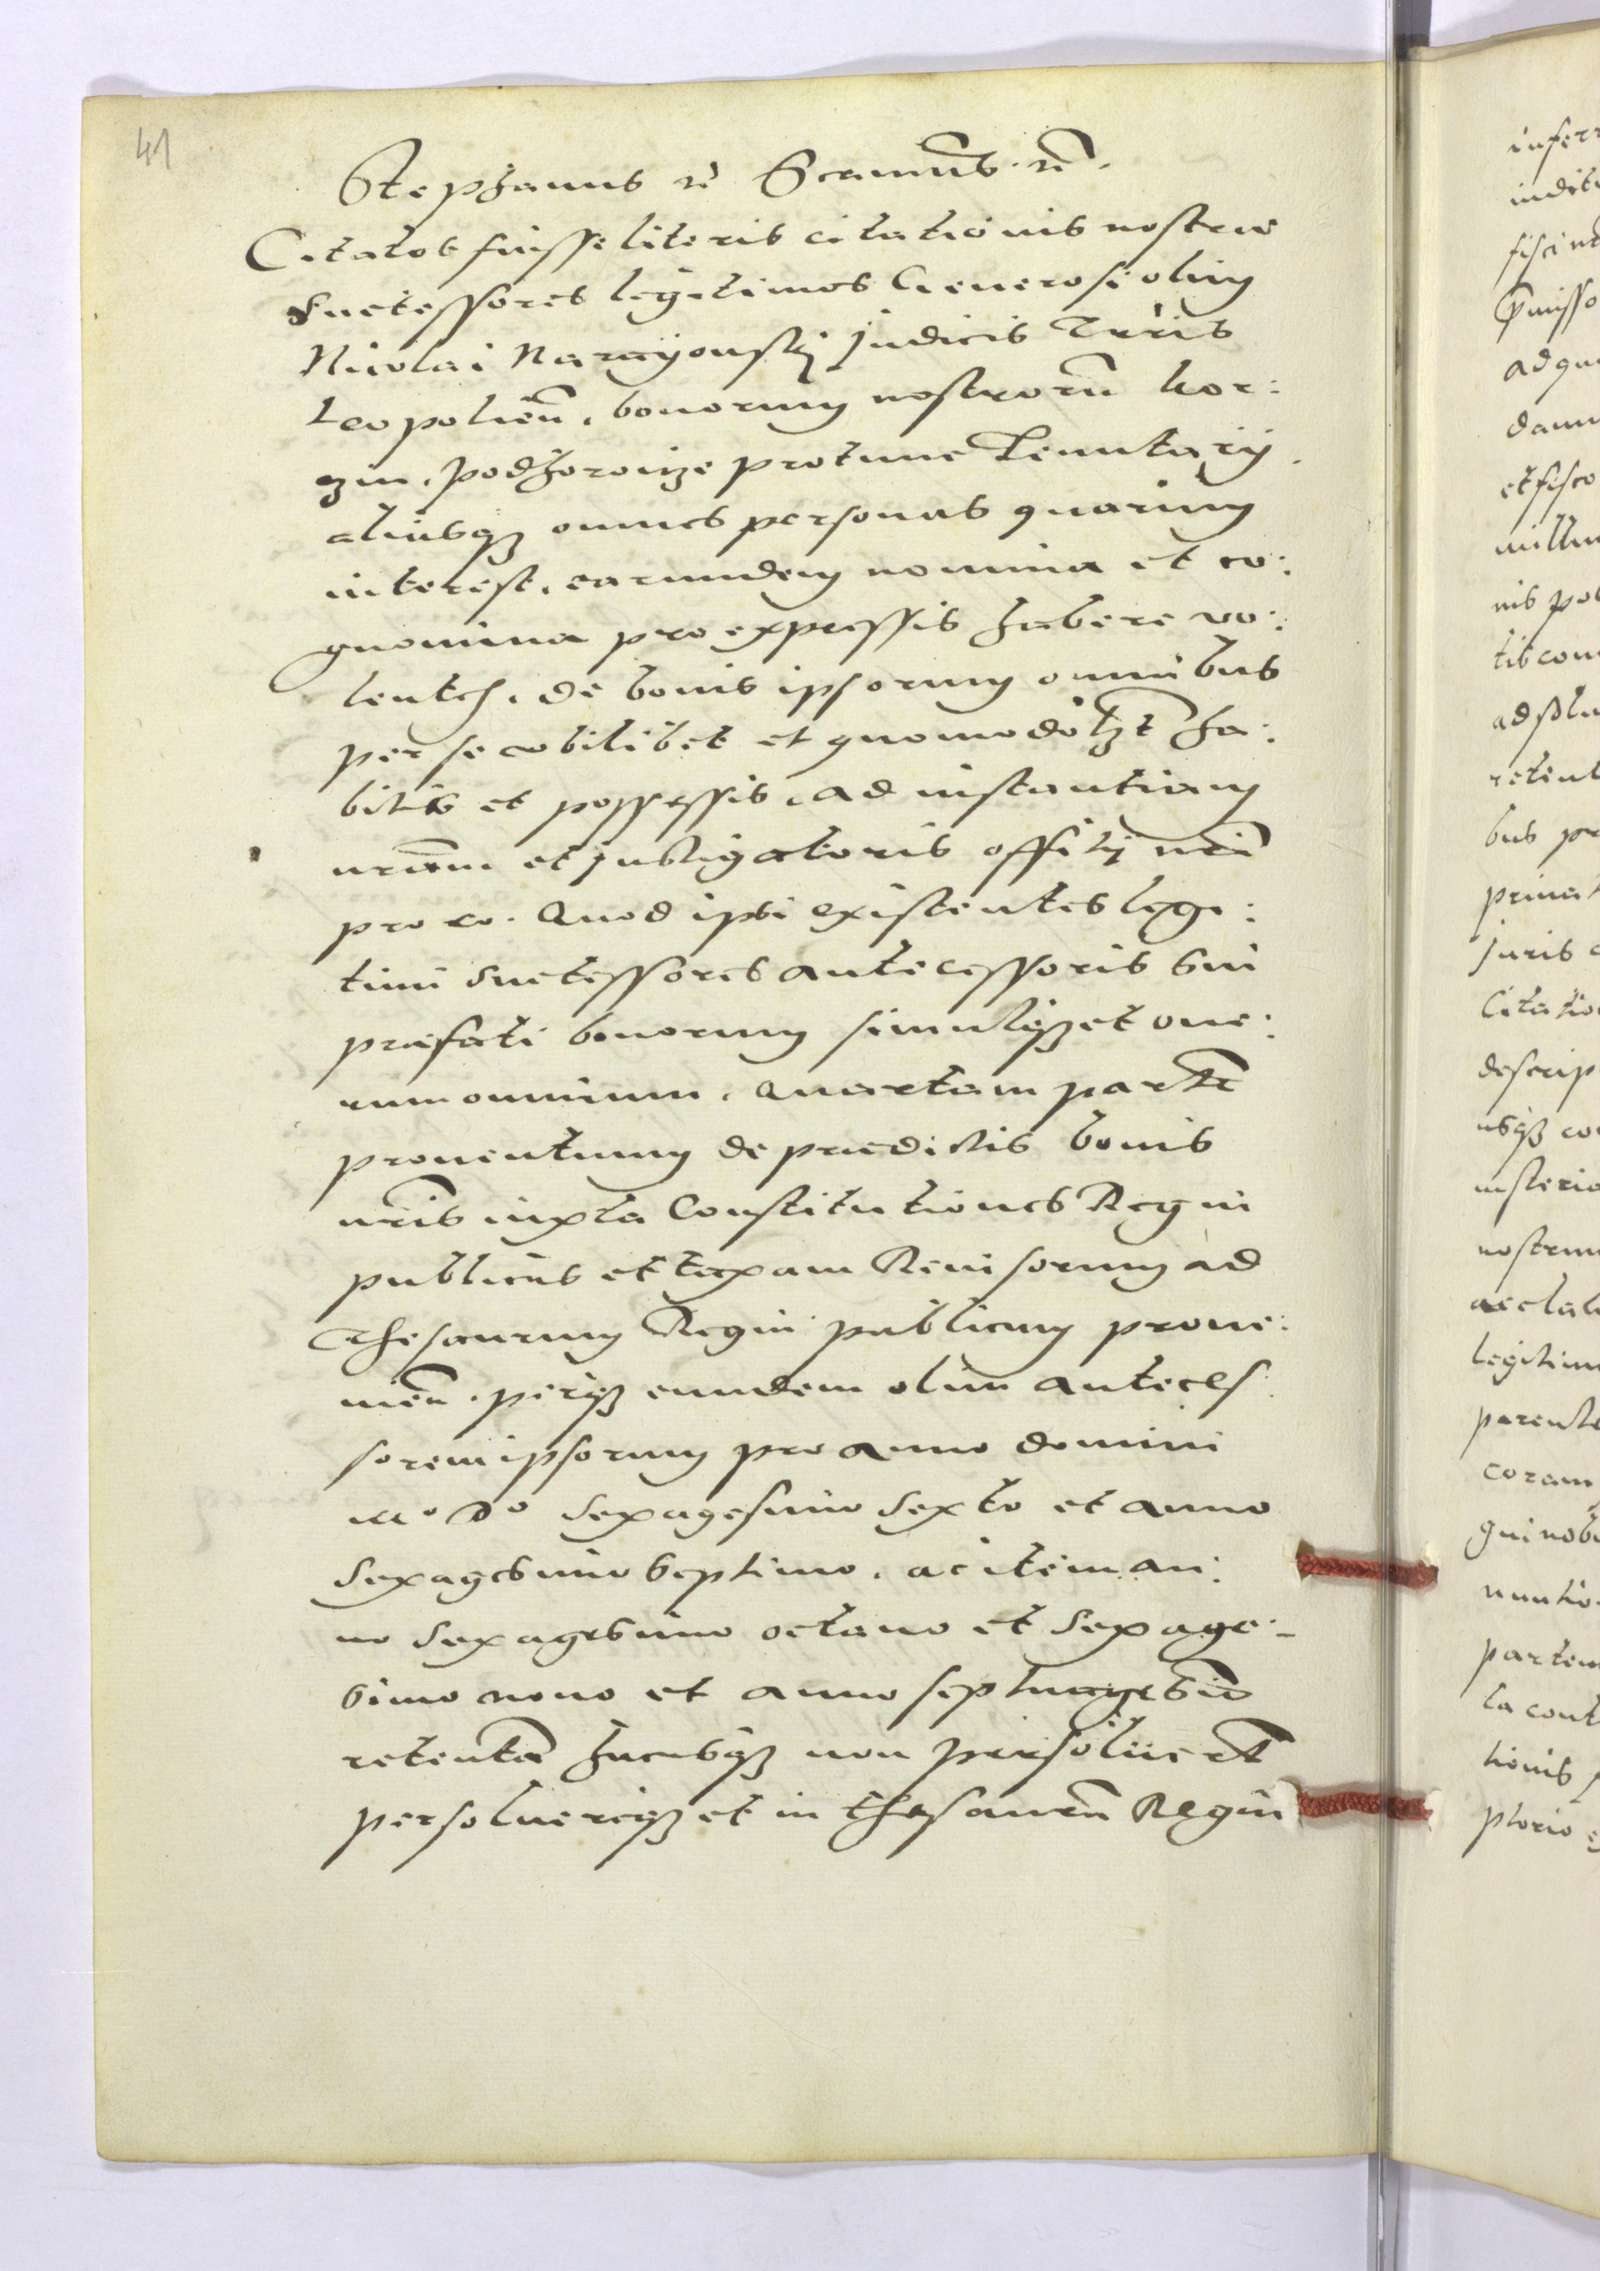 41
Stephanus rē Scamnū. rē.
Citatos fuisse literis citationis nostrae
Suctessores legitimos Generosi olim
Nicolai Narayowskj judicis Trrīs
Leopolien̄. bonorum nostrorū hor:
. podhorouze protunc Tenutarij
aliasqȝ omnes personas quarum
interest. earundem nomina et co:
gnomina pro expressis habere vo:
lentes. de bonis ipsorum omnibus
per se vbilibet et quomodolȝt ha:
bitis et possessis. ad instantiam
nr̄am et Instigatoris offitij nr̄i
pro eo. Quod ipsi existentes legi:
timi suctessores antecessoris sui
praefati bonorum simulqȝ et one:
rum omnium. quartam parte̅
prouentuum de praedictis bonis
nr̄is iuxta Constitutiones Regni
publicas et taxam Reuisorum ad
Thesaurum Regni publicum proue:
nien̄. perqȝ eundem olim anteces
sorem ipsorum pro anno domini
Mº Dº sexagesimo sexto et anno
sexagesimo septimo. ac item an:
no sexagesimo octauo et sexage:
simo nono et anno septuagesimo
retenta̅ hucusqȝ non persoluert
persoluereqȝ et in thesauru̅ Regni
inferr
indebi
fisci n
p̄misso
ad qu
damn
et fisco
millu
nis pot
tis com
ad solu
retent
bus pr
priuat
juris c
Citatio
descrip
usqȝ co
ministerio
nostrum
ac
legitim
parente
coram
qui nobi
nuntio
partem
ta cont
tionis
ptorio e